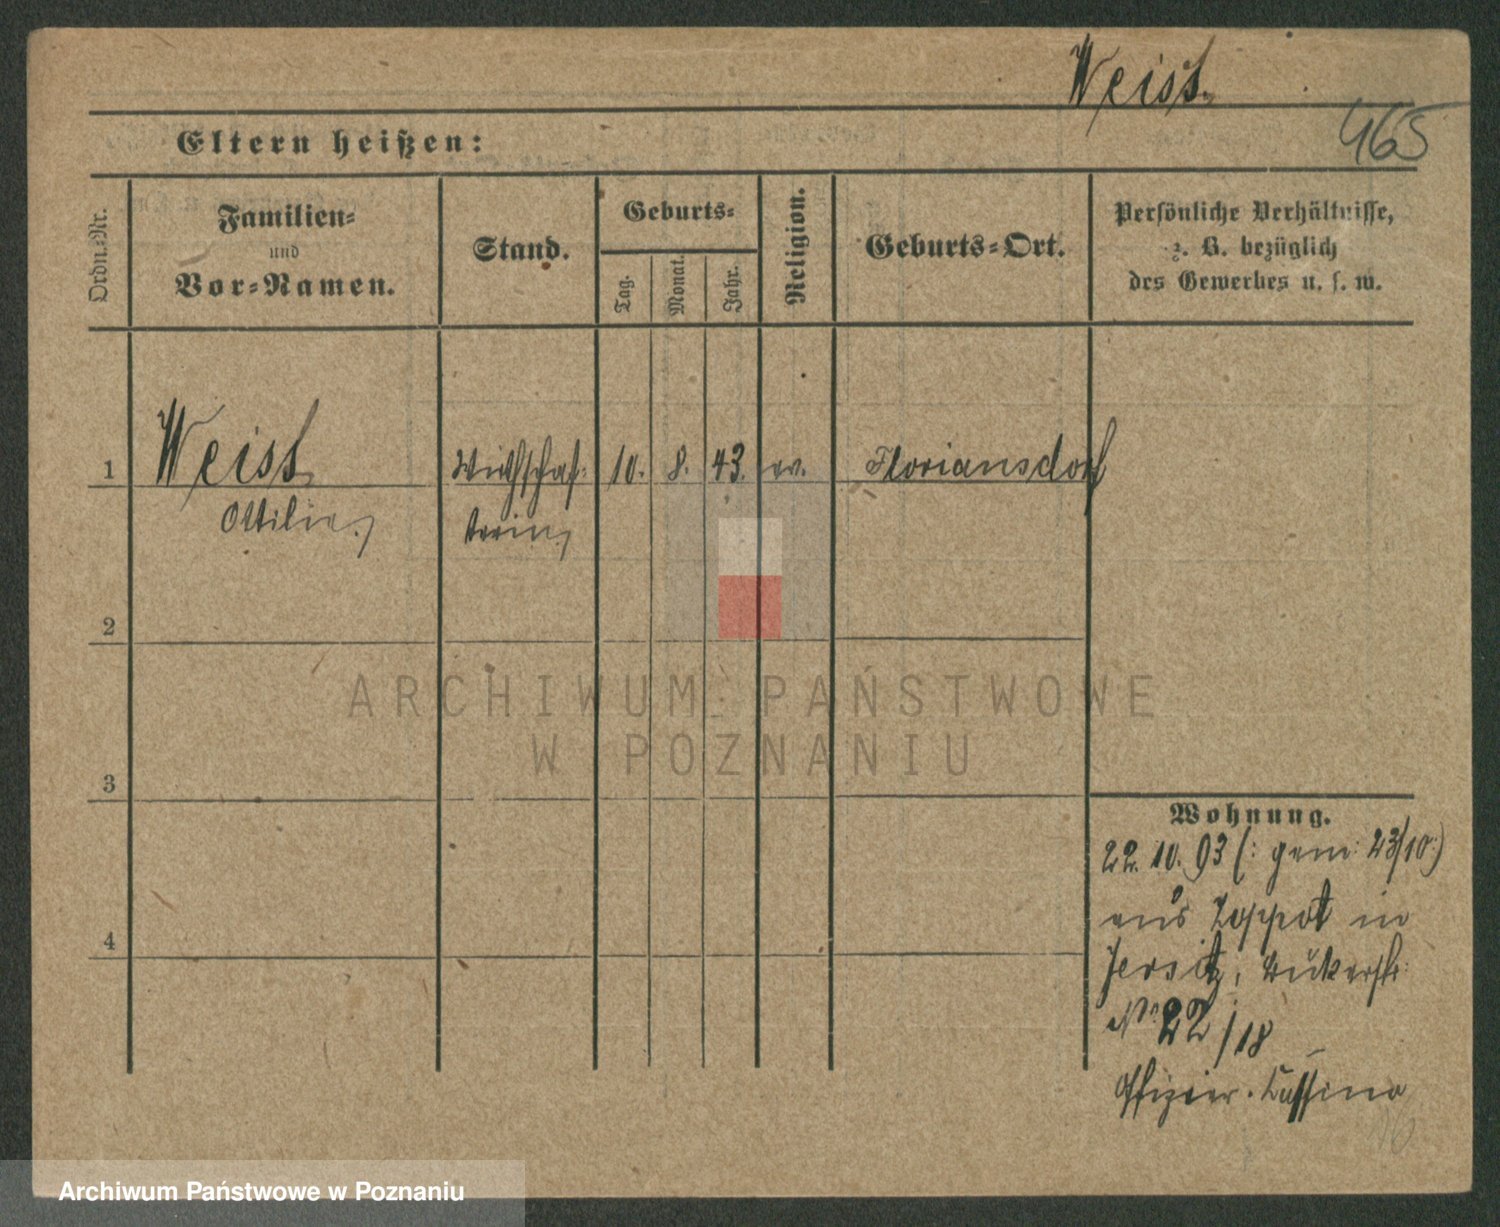 Weiss.
465
Eltern heißen:
Ordn.-Nr.
Familien-
und
Vor-Namen.
Stand.
Geburts-
Tag.
Monat.
Jahr.
Religion.
Geburts-Ort.
Persönliche Verhältnisse,
z. B. bezüglich
des Gewerbes u. s. w.
1 Weiss Wirthschaf- 10. 8. 43. ev. Floriansdorf
Ottilie terin
2
3
4
ARCHIWUM PAŃSTWOWE
W POZNANIU
Wohnung.
22. 10. 93 (: gem: 23/10:)
aus Zoppot in
Jersitz,
No 22/18
Offizier-Cassino
Archiwum Państwowe w Poznaniu